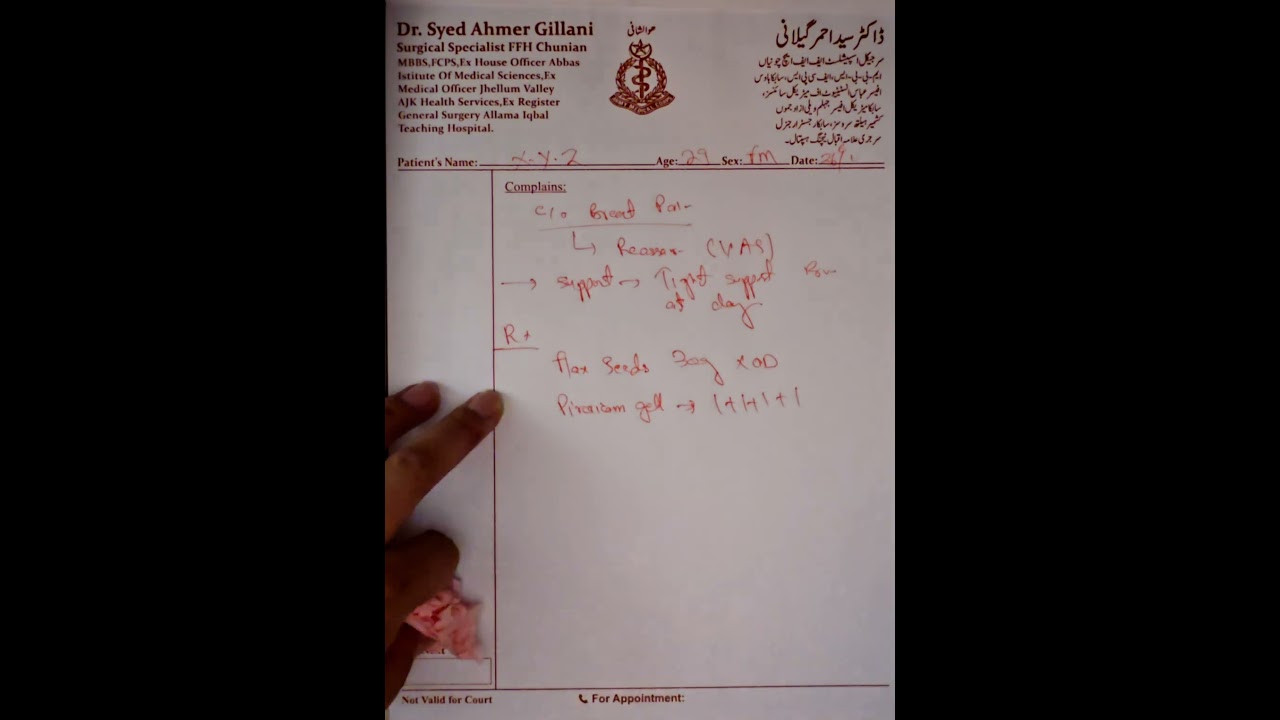 Dr. Syed Ahmer Gillani
Surgical Specialist FFH Chunian
MBBS,FCPS,Ex House Officer Abbas
Istitute Of Medical Sciences,Ex
Medical Officer Jhellum Valley
AJK Health Services,Ex Register
General Surgery Allama Iqbal
Teaching Hospital.
ھوالشافی
ڈاکٹر سید احمر گیلانی
سرجیکل اسپیشلسٹ ایف ایف ایچ چونیاں
ایم-بی-بی-ایس، ایف سی پی ایس، سابقا ہاوس
آفیسر عباس انسٹیٹیوٹ آف میڈیکل سائنسز،
سابقا میڈیکل آفیسر جہلم ویلی آزاد جموں
کشمیر ہیلتھ سروسز، سابقا رجسٹرار جنرل
سرجری علامہ اقبال ٹیچنگ ہسپتال۔
Patient's Name: X.Y.Z Age: 29 Sex: fm Date: 26/1
Complains:
c/o Breast Pain
↳ Reassur (VAS)
→ Support → Tight support Bra
at day
Rx
flax Seeds 30g x OD
Piroxicam gell → 1+1+1+1
Not Valid for Court
For Appointment: